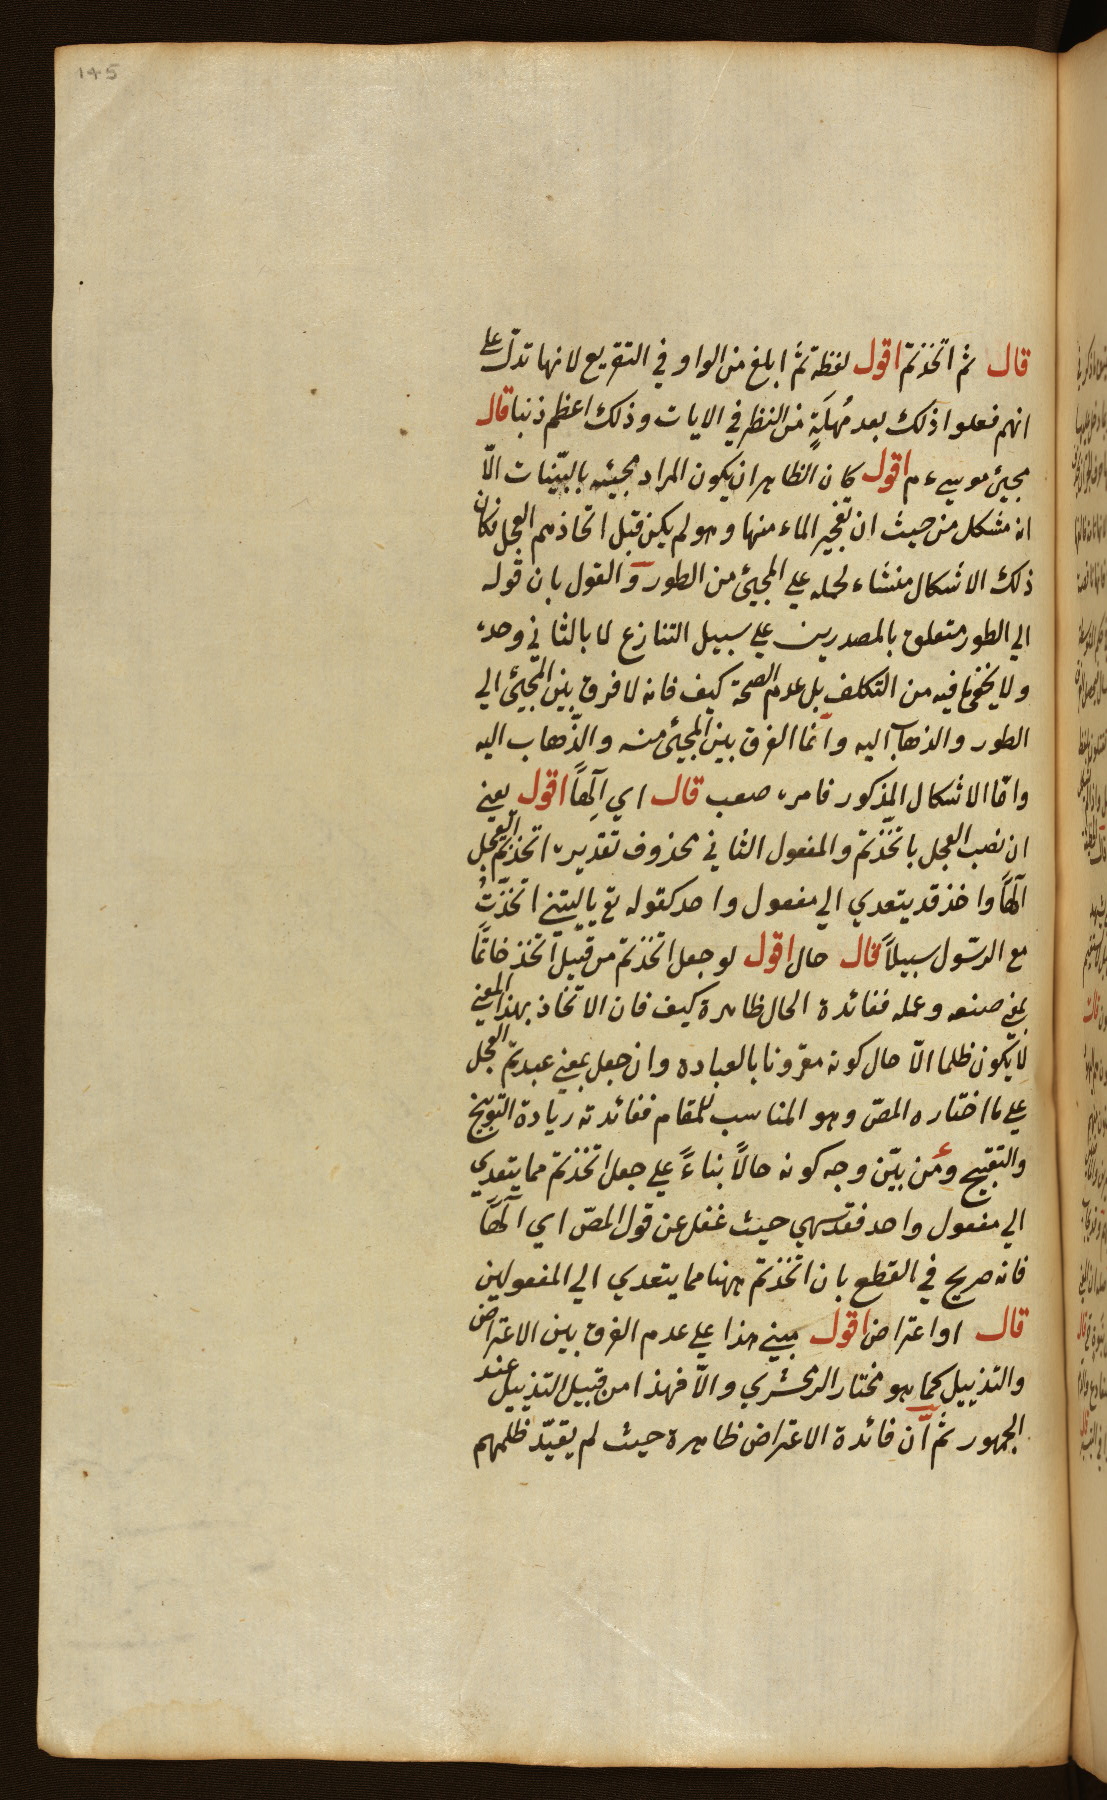 145
قال ثم اتخذتم اقول لفظة ثمّ ابلغ من الواو في التقريع لانها تدلّ على
انهم فعلوا ذلك بعد مُهلَةٍ من النظر في الايات وذلك اعظم ذنبا قال
مجيئ موسى ء م اقول كان الظاهر ان يكون المراد مجيئه بالبيّنات الّا
انه مشكل من حيث ان تفجير الماء منها وهو لم يكن قبل اتخاذهم العجل فكان
ذلك الاشكال منشاء لحمله علي المجيئ من الطور والقول بان قوله
الي الطور متعلق بالمصدرين علي سبيل التنازع لا بالثاني وحده
ولا يخفي ما فيه من التكلف بل عدم الصحّة كيف فانه لا فرق بين المجيئ الي
الطور والذهاب اليه وانّما الفرق بين المجيئ منه والذّهاب اليه
وامّا الاشكال المذكور فامره صعب قال اي آلِهاً اقول يعني
ان نصب العجل باتخذتم والمفعول الثاني محذوف تقديره اتخذتم العجل
آلهاً واخذ قد يتعدي الي مفعول واحد كقوله تع ياليتني اتخذتُ
مع الرسّول سبيلاً قال حال اقول لو جعل اتخذتم من قبيل اتخذ خاتمًا
بمعني صنعه وعمله ففائدة الحال ظاهرة كيف فان الاتخاذ بهذا المعني
لا يكون ظلما الّا حال كونه مقرونا بالعباده وان جعل بمعني عبدتم العجل
علي ما اختاره المصّ وهو المناسب للمقام ففائدته زيادة التوبيخ
والتقبيح ومن بيّن وجه كونه حالاً بناءً علي جعل اتخذتم مما يتعدي
الي مفعول واحد فقد سهي حيث غفل عن قول المصّ اي الهًا
فانه صريح في القطع بان اتخذتم ههنا مما يتعدي الي المفعولين
قال او اعتراض اقول مبني هذا علي عدم الفرق بين الاعتراض
والتذييل كما هو مختار الزمخشري والّا فهذا من قبيل التذييل عند
الجمهور ثمّ انّ فائدة الاعتراض ظاهرة حيث لم يقيّد ظلمهم